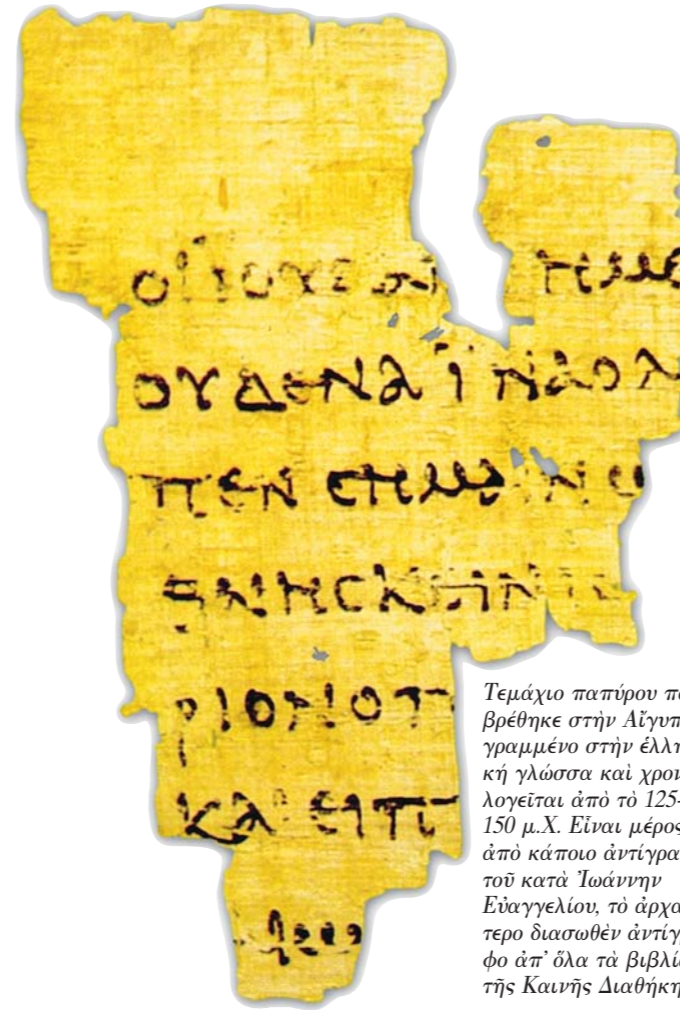 ΟΙ ΙΟΥΔΑΙ ΗΜΕ
ΟΥΔΕΝΑ ΪΝΑ Ο Λ
ΠΕΝ CΗΜΑΙΝΩ
ΘΝΗCΚΕΙΝ
ΡΙΟΝ Ο Π
ΚΑΙ ΕΙΠ
Τεμάχιο παπύρου πο
βρέθηκε στὴν Αἴγυπ
γραμμένο στὴν ἑλλη
κή γλώσσα καὶ χρον
λογεῖται ἀπὸ τὸ 125-
150 μ.Χ. Εἶναι μέρος
ἀπὸ κάποιο ἀντίγρα
τοῦ κατὰ Ἰωάννην
Εὐαγγελίου, τὸ ἀρχα
τερο διασωθὲν ἀντίγ
φο ἀπ' ὅλα τὰ βιβλί
τῆς Καινῆς Διαθήκη